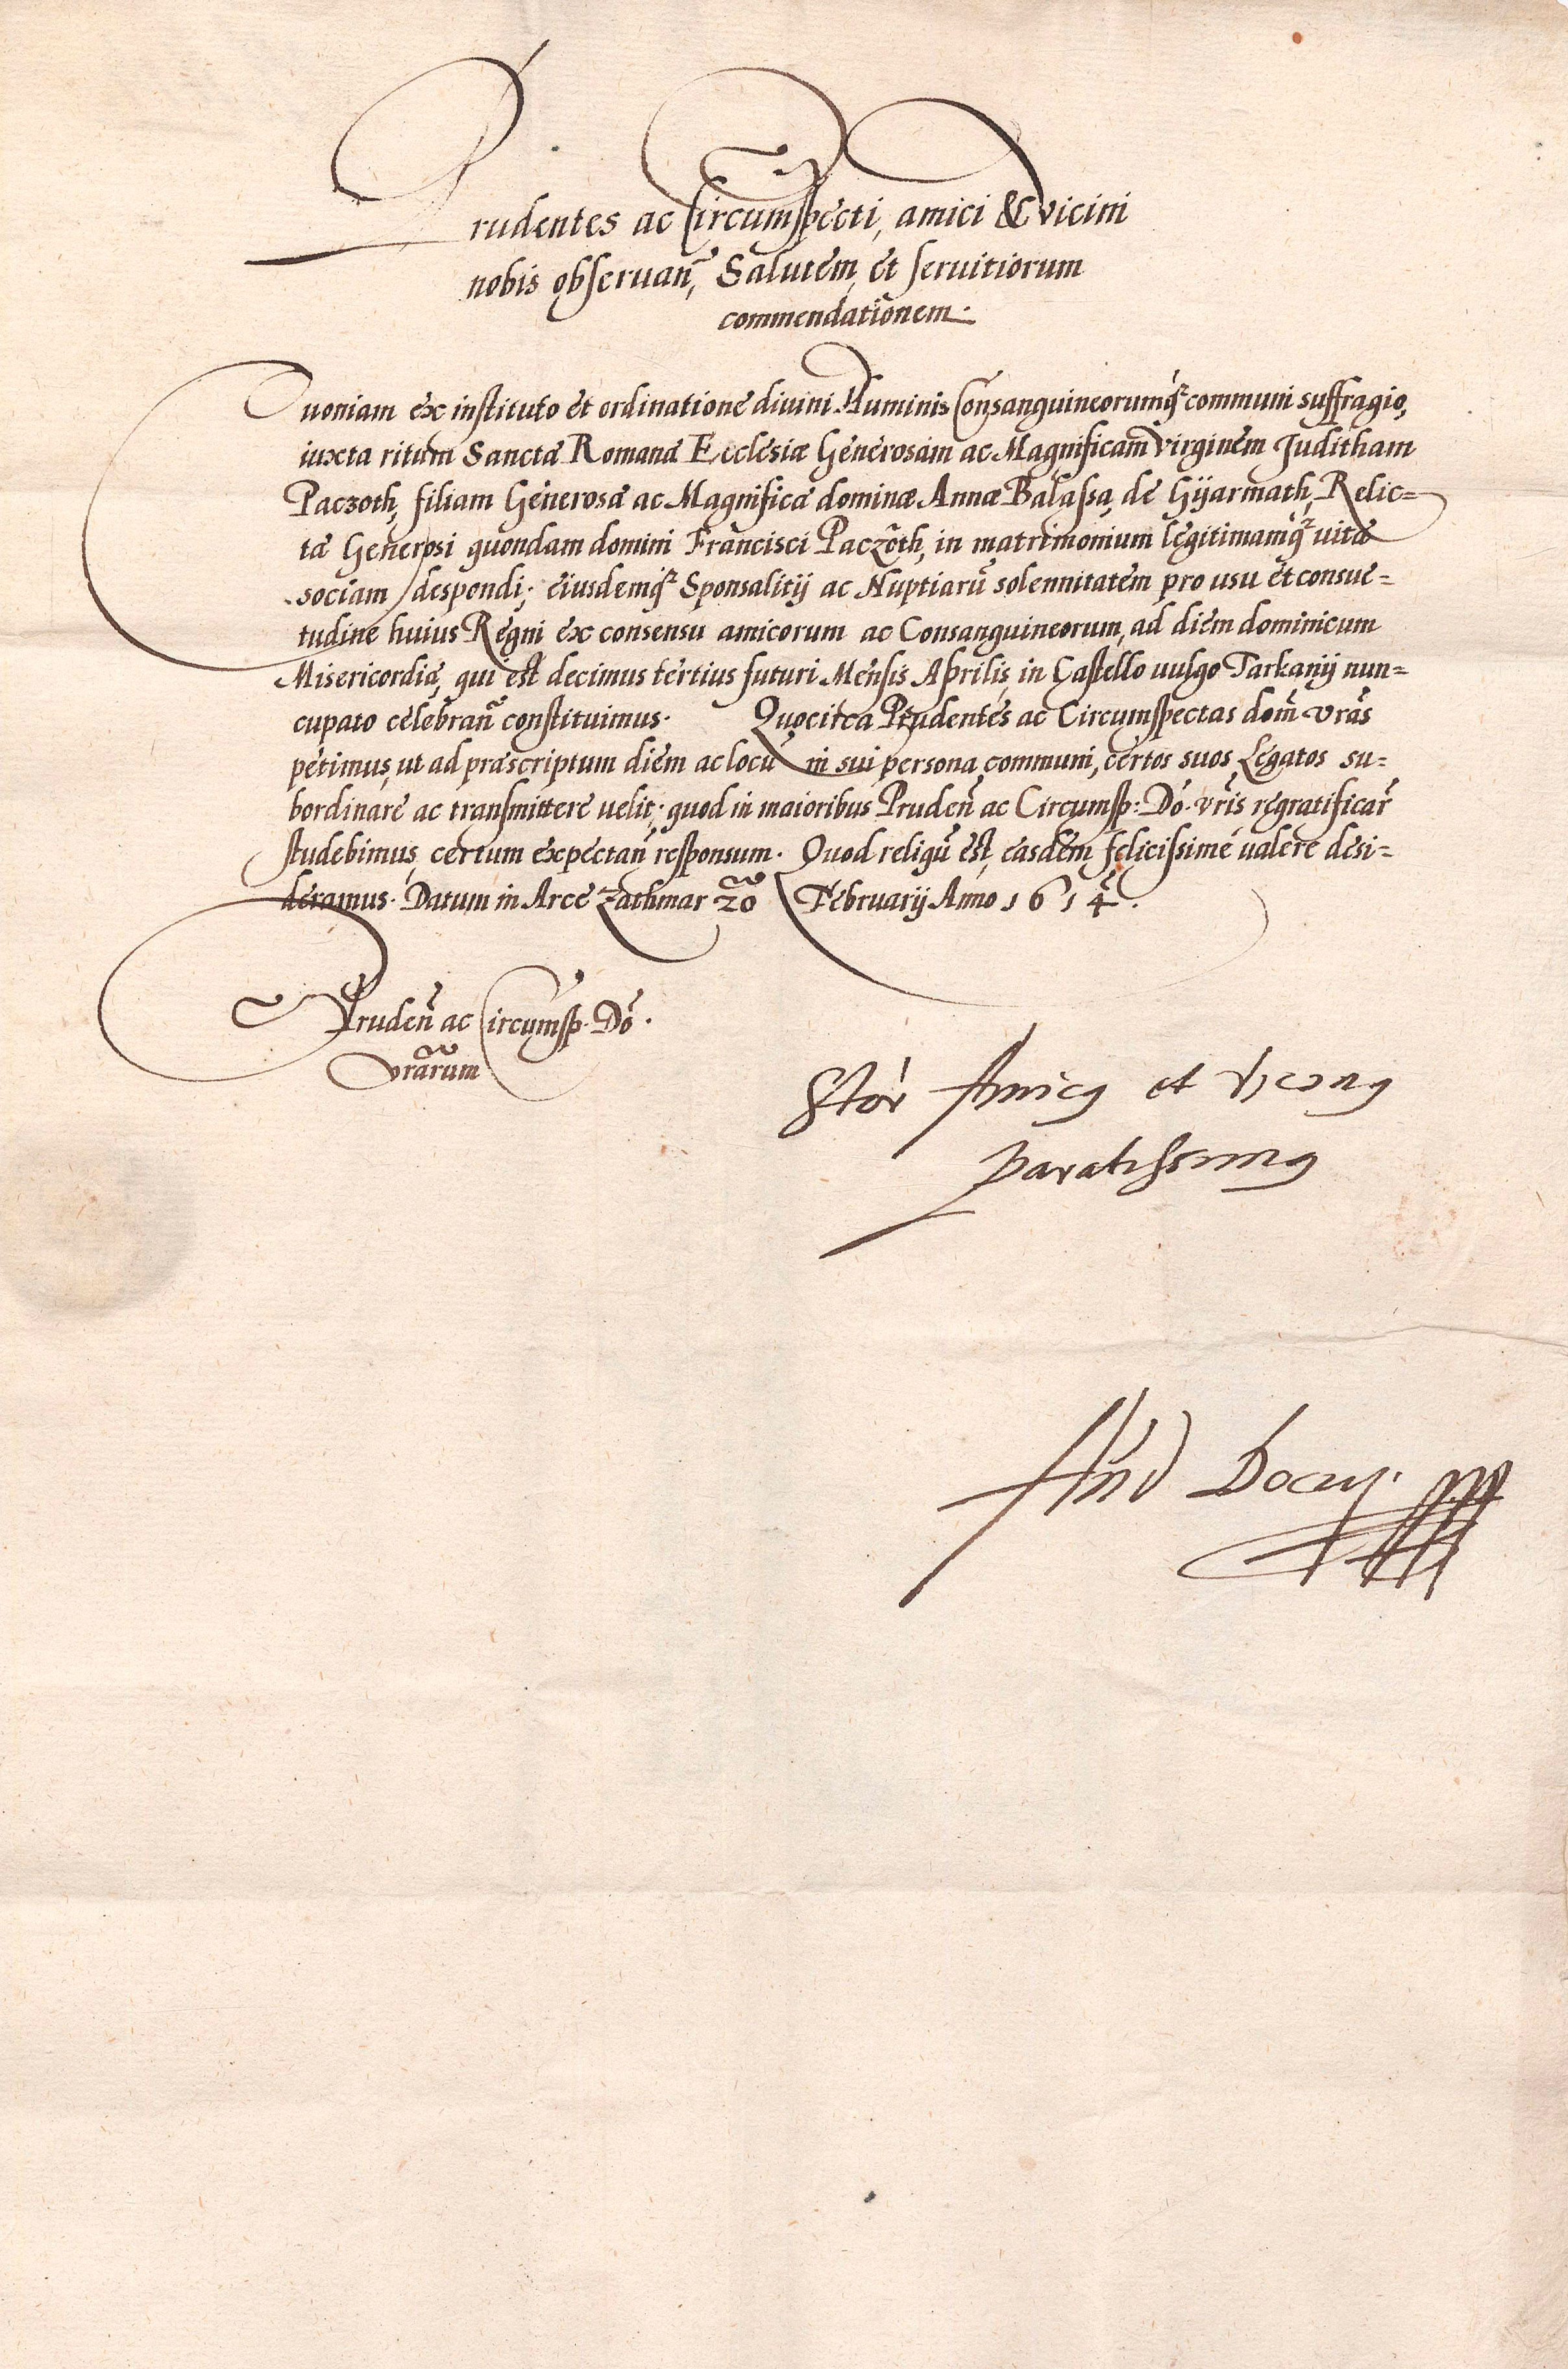 Prudentes ac Circumspecti, amici & vicini
nobis observan̄, Salutem, et servitiorum
commendationem.
Quoniam ex instituto et ordinatione divini Numinis Consanguineorumq́ꝫ communi suffragio,
iuxta ritum Sanctæ Romanæ Ecclesiæ Generosam ac Magnificam virginem Juditham
Paczoth, filiam Generosæ ac Magnificæ dominæ Annæ Balassa, de Gÿarmath, Relic=
tæ Generosi quondam domini Francisci Paczoth, in matrimonium legitimamq́ꝫ uitæ
sociam despondi; eiusdemq́ꝫ Sponsalitij ac Nuptiarū solennitatem pro usu et consue=
tudine huius Regni ex consensu amicorum ac Consanguineorum, ad diem dominicum
Misericordiæ, qui est decimus tertius futuri Mensis Aprilis, in Castello uulgo Tarkanij nun=
cupato celebran̄ constituimus. Quocirca Prudentes ac Circumspectas dom̄ vrās
petimus, ut ad præscriptum diem ac locū in sui persona communi, certos suos Legatos su=
bordinare ac transmittere velit; quod in maioribus Pruden̄ ac Circumsp: Dō. vrīs regratificar̄
studebimus, certum expectan̄ responsum. Quod reliqū est, easdem felicissimè ualere desi=
deramus. Datum in Arce Zathmar 20 Februarij Anno 1614.
Pruden̄ ac Circumsp. Dō.
vrārum
Amicꝰ et vicinꝰ
paratissimꝰ
And Doczy.